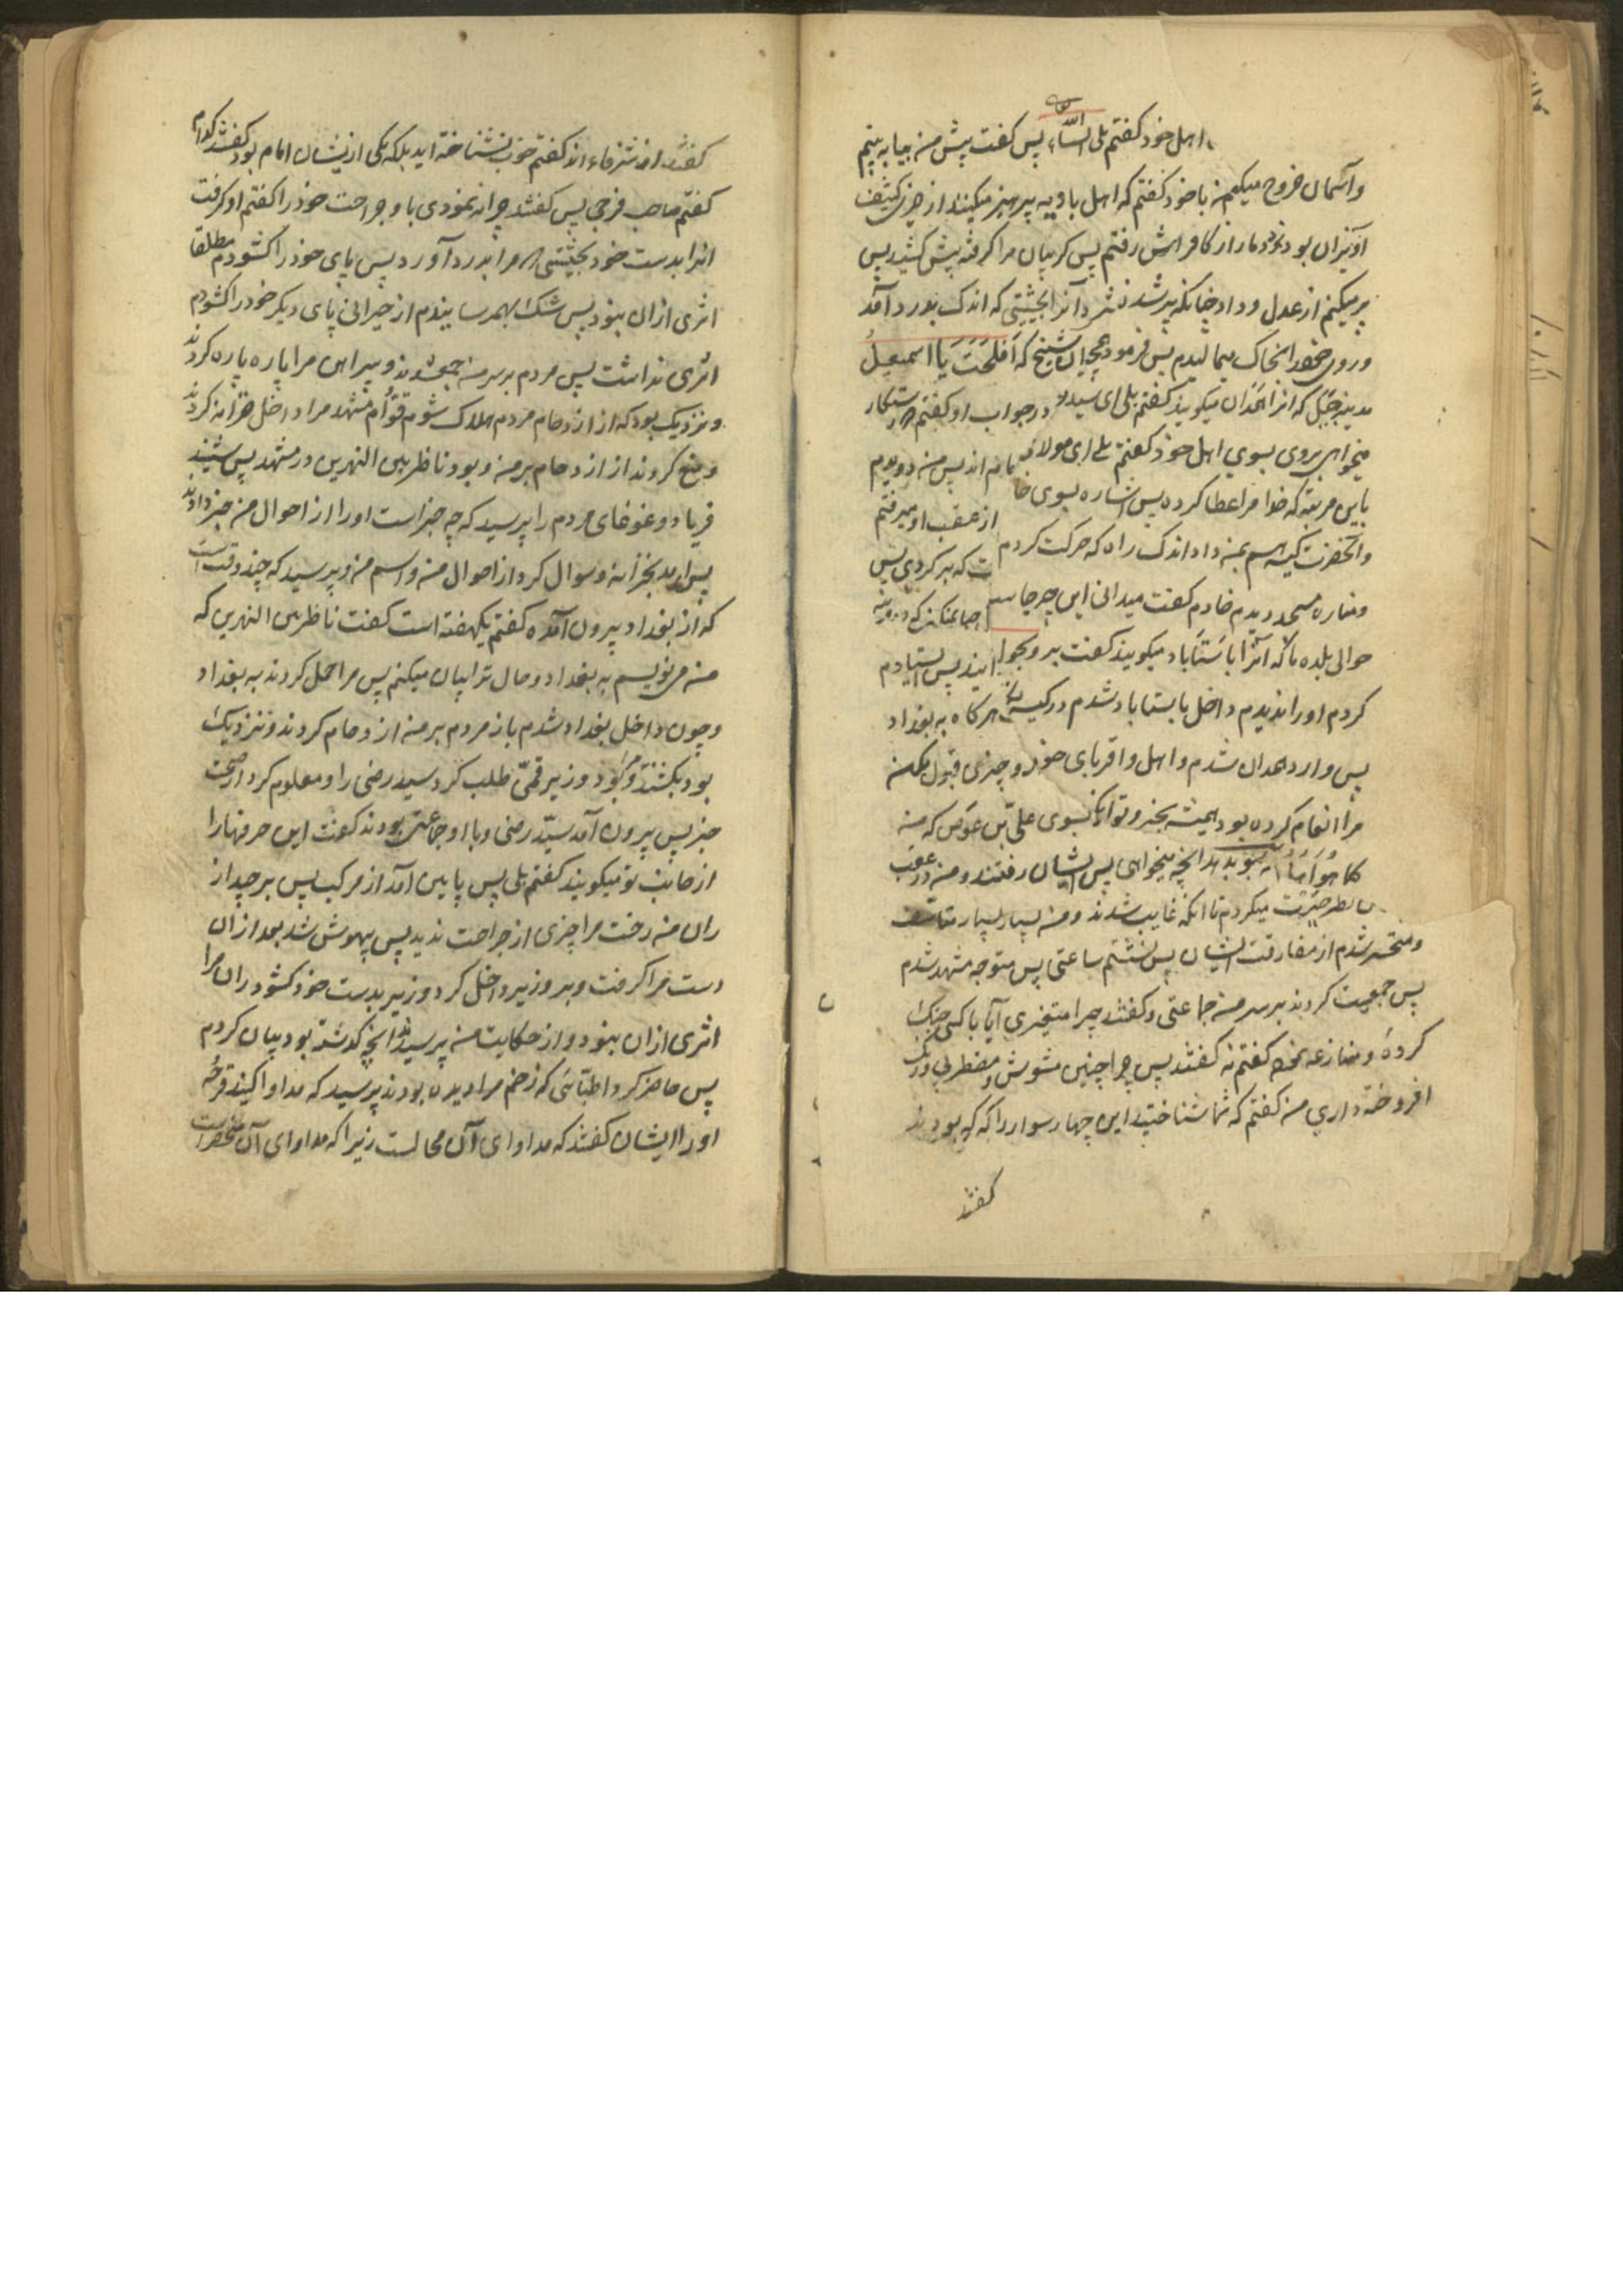 اهل خود کفتم بلی انشاءالله پس کفت پیش من بیا به بینم
وآسمان خروج میکنم من با خود کفتم که اهل بادیه پرهیز نمیکنند از چیزی کثیف
آویزان بود دمار از کافر رفتم پس کریبان مرا کرفته پیش کشید پس
پر میکنم از عدل و داد چنانکه پر شده فشرد آنرا بحیثیتی که اندک بدرد آمد
وروی خود را بخاک میمالیدم پس فرمود شیخ که اَفلحتَ یا اسمعیل
مدینه جبل که آنرا همدان میکویند کفتم بلی ای سید و در جواب او کفتم رستکار
میخواهی بروی بسوی اهل خود کفتم بلی ای مولای ما نه اند پس من دویدم
باین مرتبه که خدا مرا عطا کرده پس اشاره بسوی خا از عقب او میرفتم
وآنحضرت کیسه بمن داد اندک راه که حرکت کردم ت که بر کردی پس
ومناره مسجد دیدم خادم کفت میدانی این چه جا
حوالی بلده ما که آنرا باستاباد میکویند کفت برو ایند پس ایستادم
کردم او را ندیدم داخل باستاباد شدم در کیسه هرکاه به بغداد
پس وارد همدان شدم و اهل و اقربای خود و چیزی قبول مکن
مرا انعام کرده بود همیشه بخیر و بسوی علی بن عوض که من
بدهد آنچه میخواهی پس ایشان رفتند و من در عقب
نظر حیرت میکردم تا آنکه غایب شدند و من بسیار بسیار متاسف
ومتحسر شدم از مفارقت ایشان پس نشستم ساعتی پس متوجه مشهد شدم
پس جمعیت کردند بر سر من جماعتی و کفتند چرا متغیری آیا با کسی جنک
کردهٔ و منازعه کفتم نه کفتند پس چرا چنین مشوش و مضطربی و رنک
افروخته داری من کفتم که شما شناختید این چهار سوار را که که بودند
کفتند
کفتند از شرفاء اند کفتم خوب نشناخته اید بلکه یکی از ایشان امام بود کفتند کدام
کفتم صاحب فرجی پس کفتند چرا ننمودی باو جراحت خود را کفتم او کرفت
آنرا بدست خود بحیثیتی که مرا بدرد آورد پس پای خود را کشودم مطلقا
اثری ازان نبود پس شک بهمرسانیدم از حیرانی پای دیکر خود را کشودم
اثری نداشت پس مردم بر سر من جمع شدند و پیراهن مرا پاره پاره کردند
ونزدیک بود که از ازدحام مردم هلاک شوم قوّام مشهد مرا داخل خزانه کردند
ومنع کردند از ازدحام بر من و بود ناظر بین النهرین در مشهد پس شنید
فریاد و غوغای مردم را پرسید که چه خبر است او را از احوال من خبر دادند
پس آمد بخزانه و سوال کرد از احوال من و اسم من و پرسید که چند وقت است
که از بغداد بیرون آمده کفتم یکهفته است کفت ناظر بین النهرین که
من می نویسم به بغداد و حال ترا بیان میکنم پس مرا حمل کردند به بغداد
وچون داخل بغداد شدم باز مردم بر من ازدحام کردند و نزدیک
بود بکشند و بود وزیر قمّی طلب کرد سید رضی را و معلوم کرد از صحت
خبر پس بیرون آمد سیّد رضی و با او جماعتی بودند کفت این حرفها را
از جانب تو میکویند کفتم بلی پس پایین آمد از مرکب پس برچید از
ران من رخت مرا چیزی از جراحت ندید پس بیهوش شد بعد ازان
دست مرا کرفت و بر وزیر داخل کرد وزیر بدست خود کشود ران مرا
اثری ازان نبود و از حکایت من پرسید آنچه کذشته بود بیان کردم
پس حاضر کرد اطبائی که زخم مرا دیده بودند پرسید که مداوا کنید قرحهٔ
او را ایشان کفتند که مداوای آن محالست زیرا که مداوای آن منحصر است